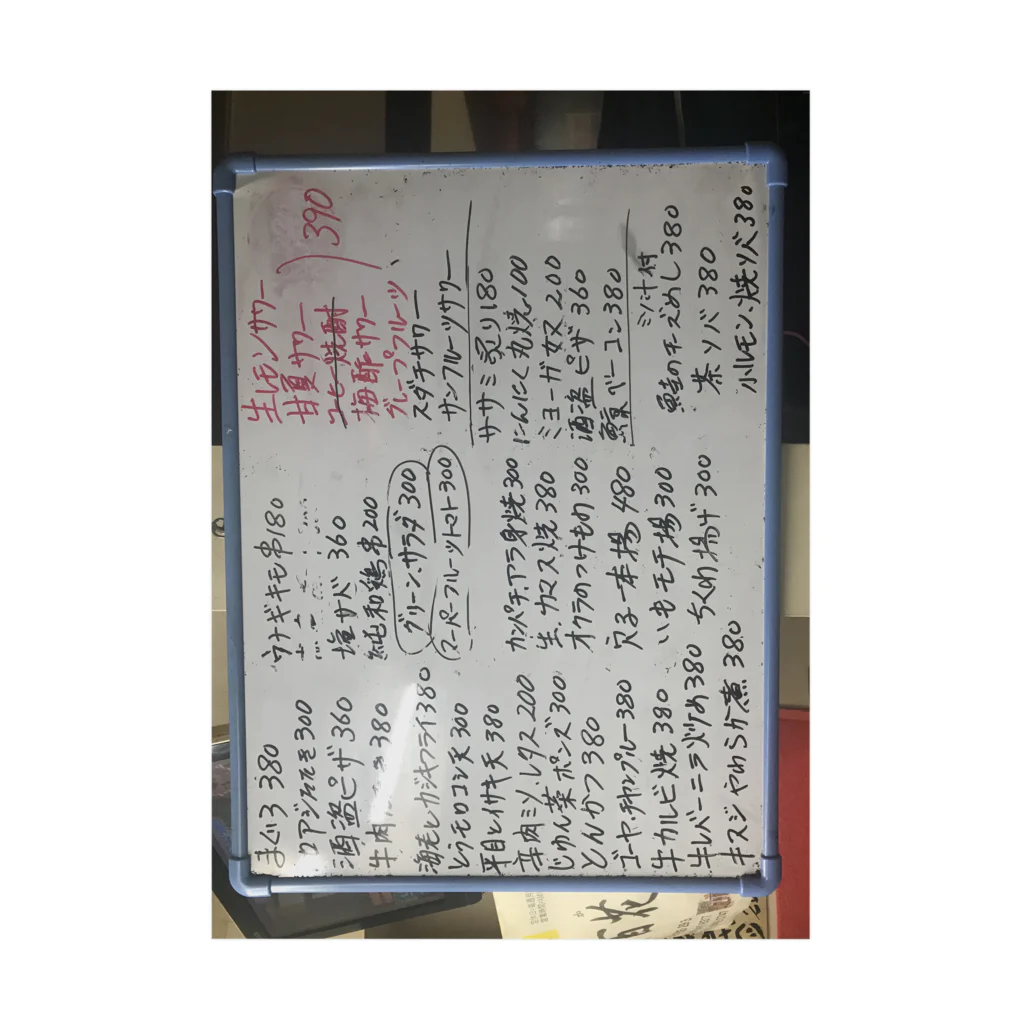 まぐろ 380
ロアジたたき 300
酒盗ピザ 360
牛肉 380
海老とカジキフライ 380
とうモロコシ天 300
平目とイサキ天 380
辛肉ミソ.レタス 200
じゅん菜ポンズ 300
とんかつ 380
ゴーヤ・チャンプルー 380
牛カルビ焼 380
牛レバーニラ炒め 380
牛スジやわらか煮 380
ウナギキモ串 180
塩サバ 360
純和鶏串 200
グリーン.サラダ 300
スーパーフルーツトマト 300
カンパチ.アラ身焼 300
生.カマス焼 380
オクラのつけもの 300
穴子一本揚 480
いもモチ揚 300
ちくわ揚げ 300
生レモンサワー
甘夏サワー
コーヒー焼酎
梅酢サワー
グレープフルーツ 〃
390
スダチサワー
サンフルーツサワー
ササミ炙り 180
にんにく丸焼 100
ミョーガ奴 200
酒盗ピザ 360
鯨ベーコン 380
ミソ汁付
鮭のチーズめし 380
茶ソバ 380
小ルレモン.焼ソバ 380